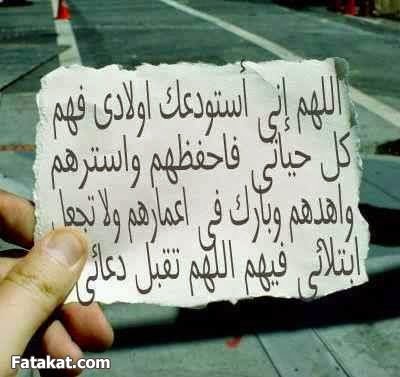 اللهم إني أستودعك اولادى فهم
كل حياتى فاحفظهم واسترهم
واهدهم وبارك فى اعمارهم ولا تجعل
ابتلائى فيهم اللهم تقبل دعائى
Fatakat.com